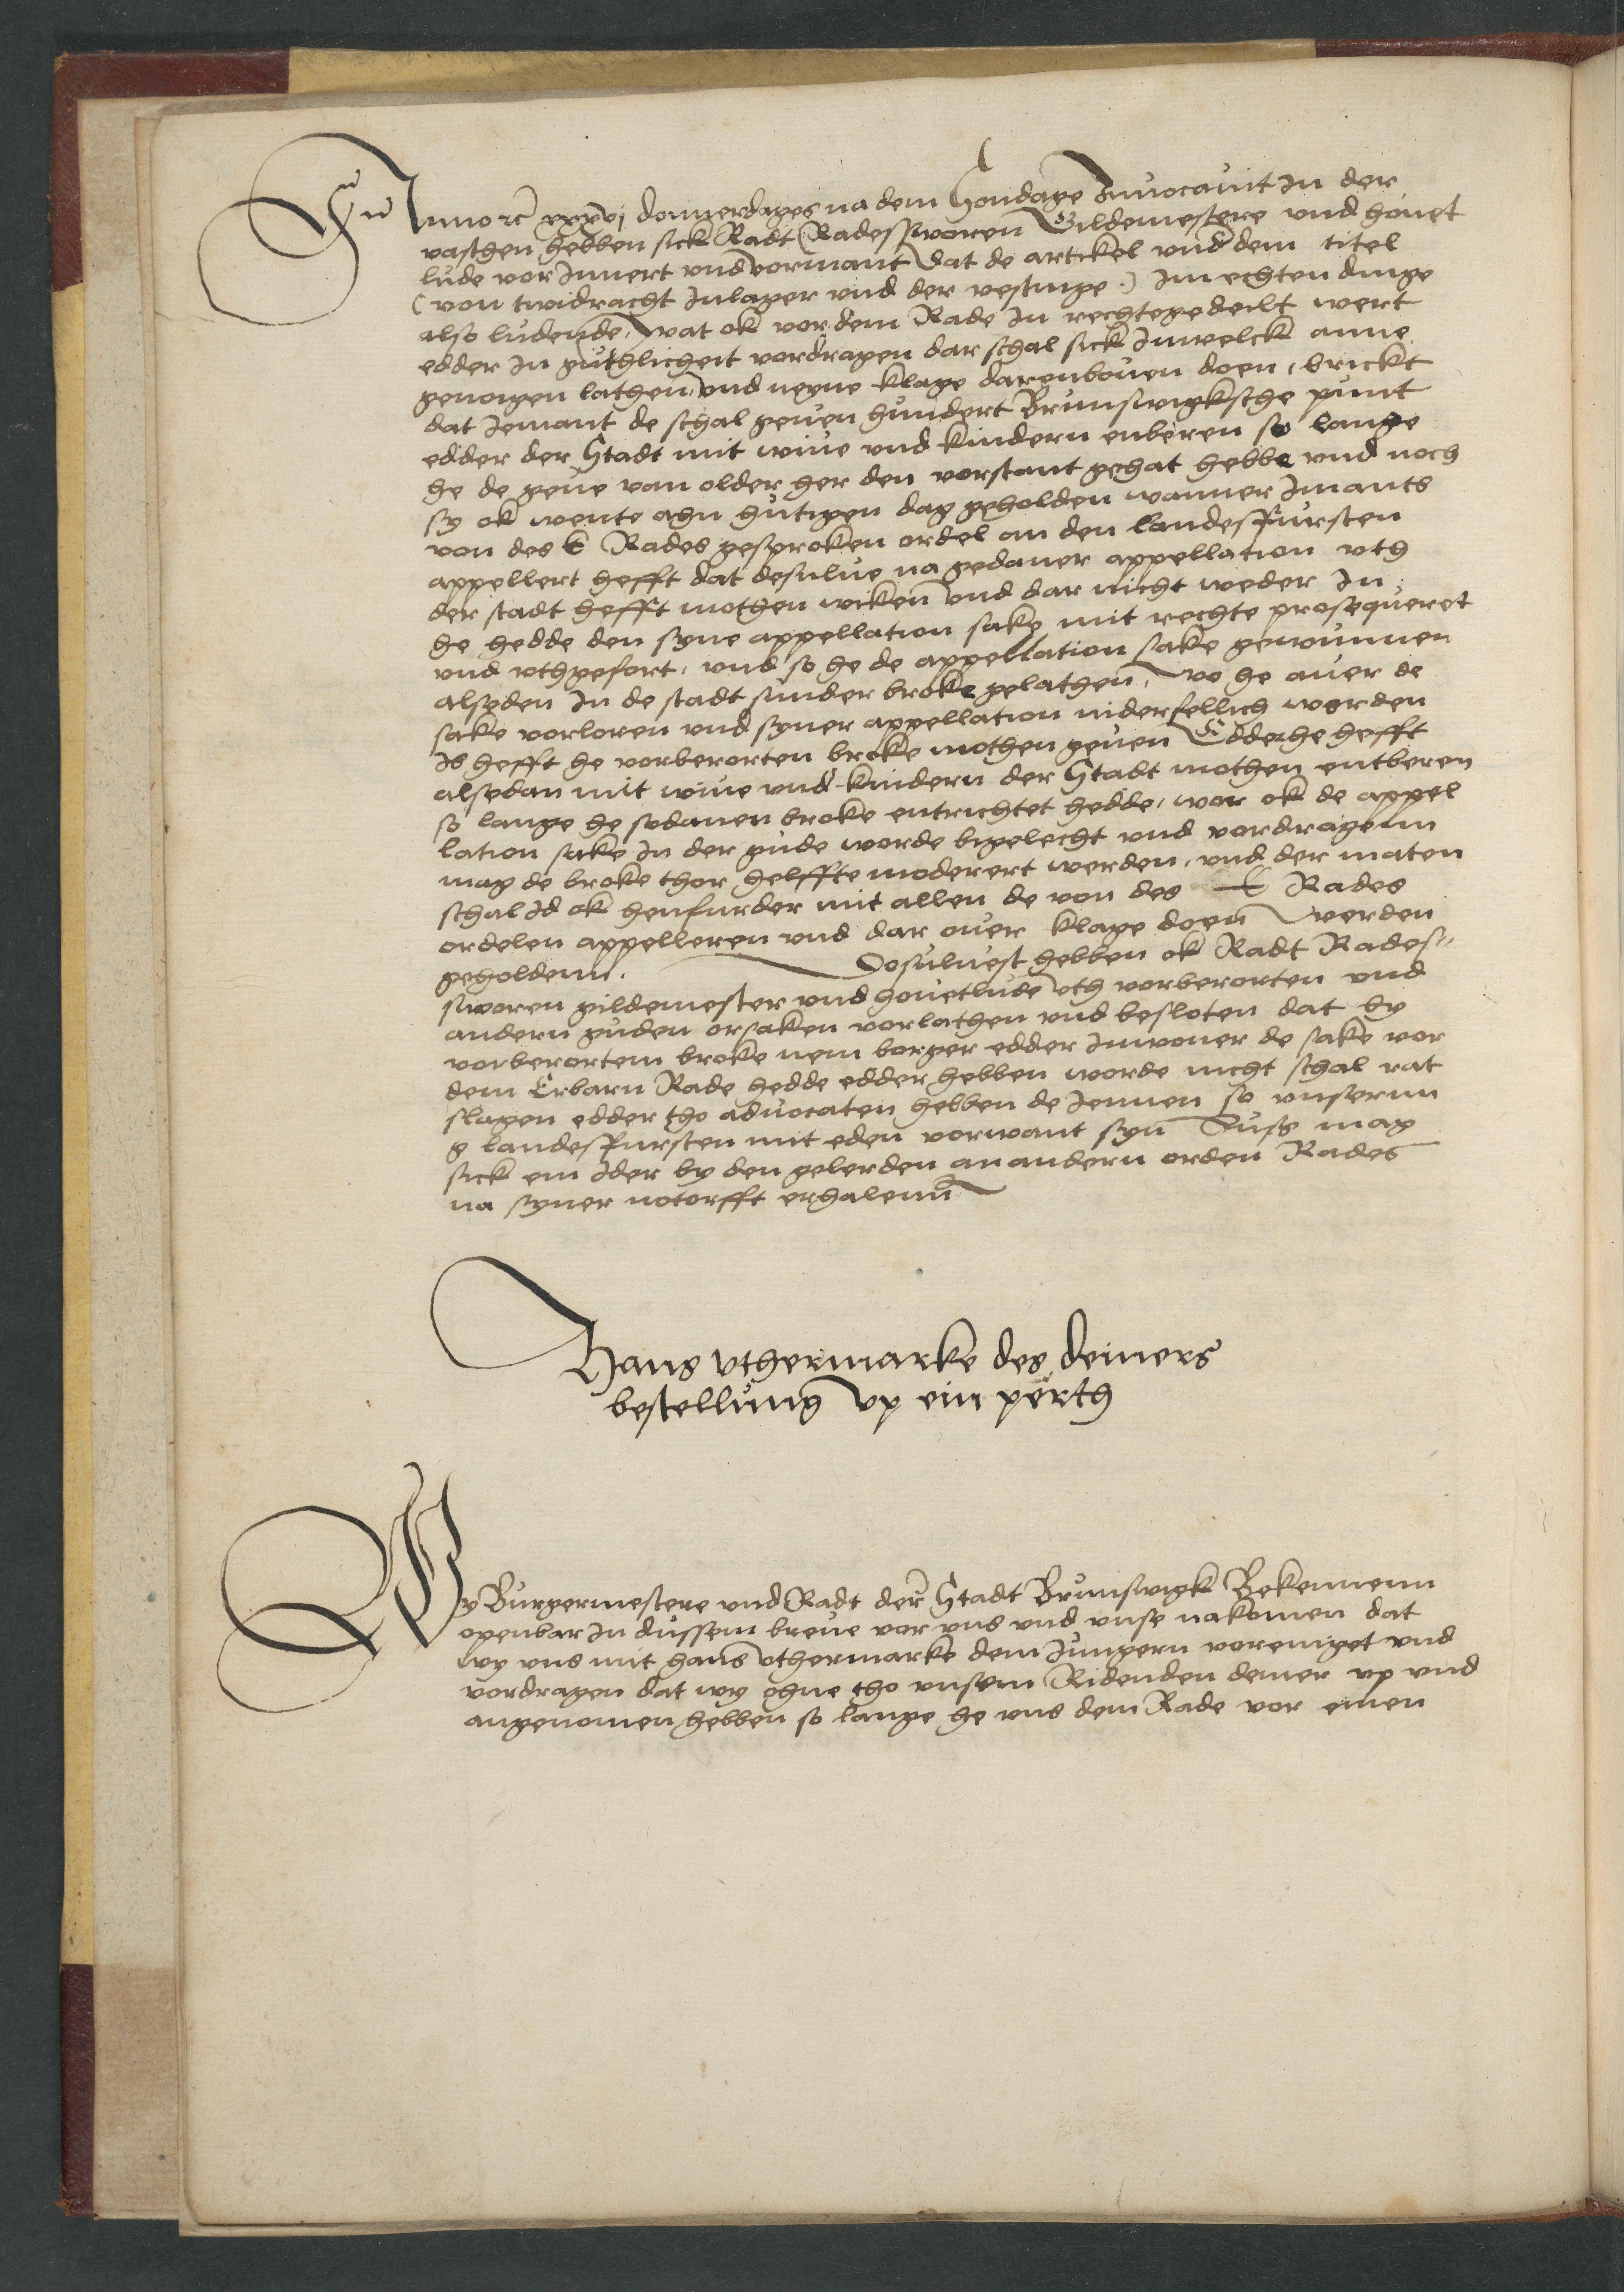 In Anno rc xxxvj donnerdages na dem Sondage Inuocauit In der
vasthen hebben sick Radt Radesswornn Gildemestere vnd houet
lude vor Innert vnd vormant dat de artickel vnd dem titel
(von twidracht Inlager vnd der vestinge) Im echten dinge
also ludende, wat ok vor dem Rade In rechte gedeilt wert
edder In guthlicheit vordragen dar schal sick Inwelck anne
genoigen lathen, vnd neyne klage darenbouen doen, brickt
dat Jemant de schal geuen hundert Brunswigksche punt
edder der Stadt mit wiue vnd kindern enberen so lange
he de geue van older her den vorstant gehat hebbe vnd noch
sy ok wente ahn hutigen dag geholden wanner Imants
von des E Rades gesproken ordel an den landesfursten
appellert hefft dat desulue na gedaner appellation vth
der stadt hefft mothen wiken vnd dar nicht weder In
he hedde den syne appellation sake mit rechte prosequeret
vnd vthgefort, vnd so he de appellation sake gewunnen
alseden In de stadt sunder broke gelathen, wo he auer de
sake vorloren vnd syner appellation niderfellich worden
Is hefft he vorberorten broke mothen geuen Edder he hefft
alsedan mit wiue vnd kindern der Stadt mothen entberen
so lange he sodanen broke entrichtet hedde, wor ok de appel
lation sake In der gude worde bigelecht vnd vordragenn
mag de broke thor helffte moderert werden, vnd der maten
schal Id ok henfurder mit allen de von des E Rades
ordelen appelleren vnd dar ouer klage doen werden
geholdenn. Dosuluest hebben ok Radt Rades-
sworen gildemester vnd houetlude vth vorberorten vnd
andern guden orsaken vorlathen vnd besloten dat by
vorberortem broke nem borger edder Inwoner de sake vor
dem Erbarn Rade hedde edder hebben worde nicht schal rat
slagen edder tho aduocaten hebben de Jennen so vnserm
g landesfursten mit eden vorwant syn Suss mag
sick ein Jder by den gelerden an andern orden Rades
na syner notorfft erhalenn
Hans vthermarke des deiners
bestellung vp ein perth
Wy Burgermestere vnd Radt der Stadt Brunswigk Bekennenn
openbar In dussem breue vor vns vnd vnse nakomen dat
wy vns mit hans vthermarke dem Jungern voreniget vnd
vordragen dat wy ohne tho vnsem Ridenden deiner vp vnd
angenomen hebben so lange he vns dem Rade vor einen